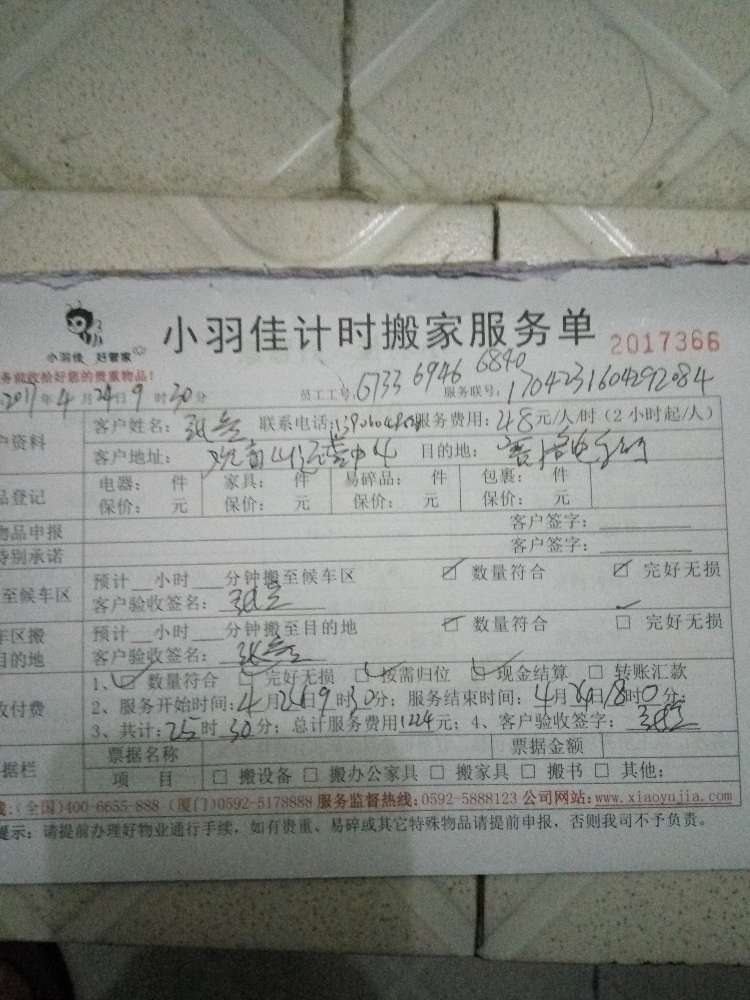 小羽佳计时搬家服务单 2017366
小羽佳 好管家
务前收拾好您的贵重物品!
2017年4月24日9时30分 员工工号: 6733 6946 6840 服务联号: 1704231604292084
户资料 客户姓名: 联系电话: 服务费用: 48元/人/时 (2小时起/人)
客户地址: 目的地:
品登记 电器: 件 家具: 件 易碎品: 件 包裹: 件
保价: 元 保价: 元 保价: 元 保价: 元
物品申报 客户签字:
特别承诺 客户签字:
至候车区 预计__小时__分钟搬至候车区 ☑ 数量符合 ☑ 完好无损
客户验收签名:
车区搬 预计__小时__分钟搬至目的地 ☑ 数量符合 ☐ 完好无损
目的地 客户验收签名:
收付费 1、☑ 数量符合 ☑ 完好无损 ☑ 按需归位 ☑ 现金结算 ☐ 转账汇款
2、服务开始时间: 4月24日9时30分; 服务结束时间: 4月 日18时0分;
3、共计: 25时30分; 总计服务费用1224元; 4、客户验收签字:
据栏 票据名称 票据金额
项 目 ☐ 搬设备 ☐ 搬办公家具 ☐ 搬家具 ☐ 搬书 ☐ 其他:
线:(全国)400-6655-888 (厦门)0592-5178888 服务监督热线:0592-5888123 公司网站:www.xiaoyujia.com
提示: 请提前办理好物业通行手续, 如有贵重、易碎或其它特殊物品请提前申报, 否则我司不予负责。